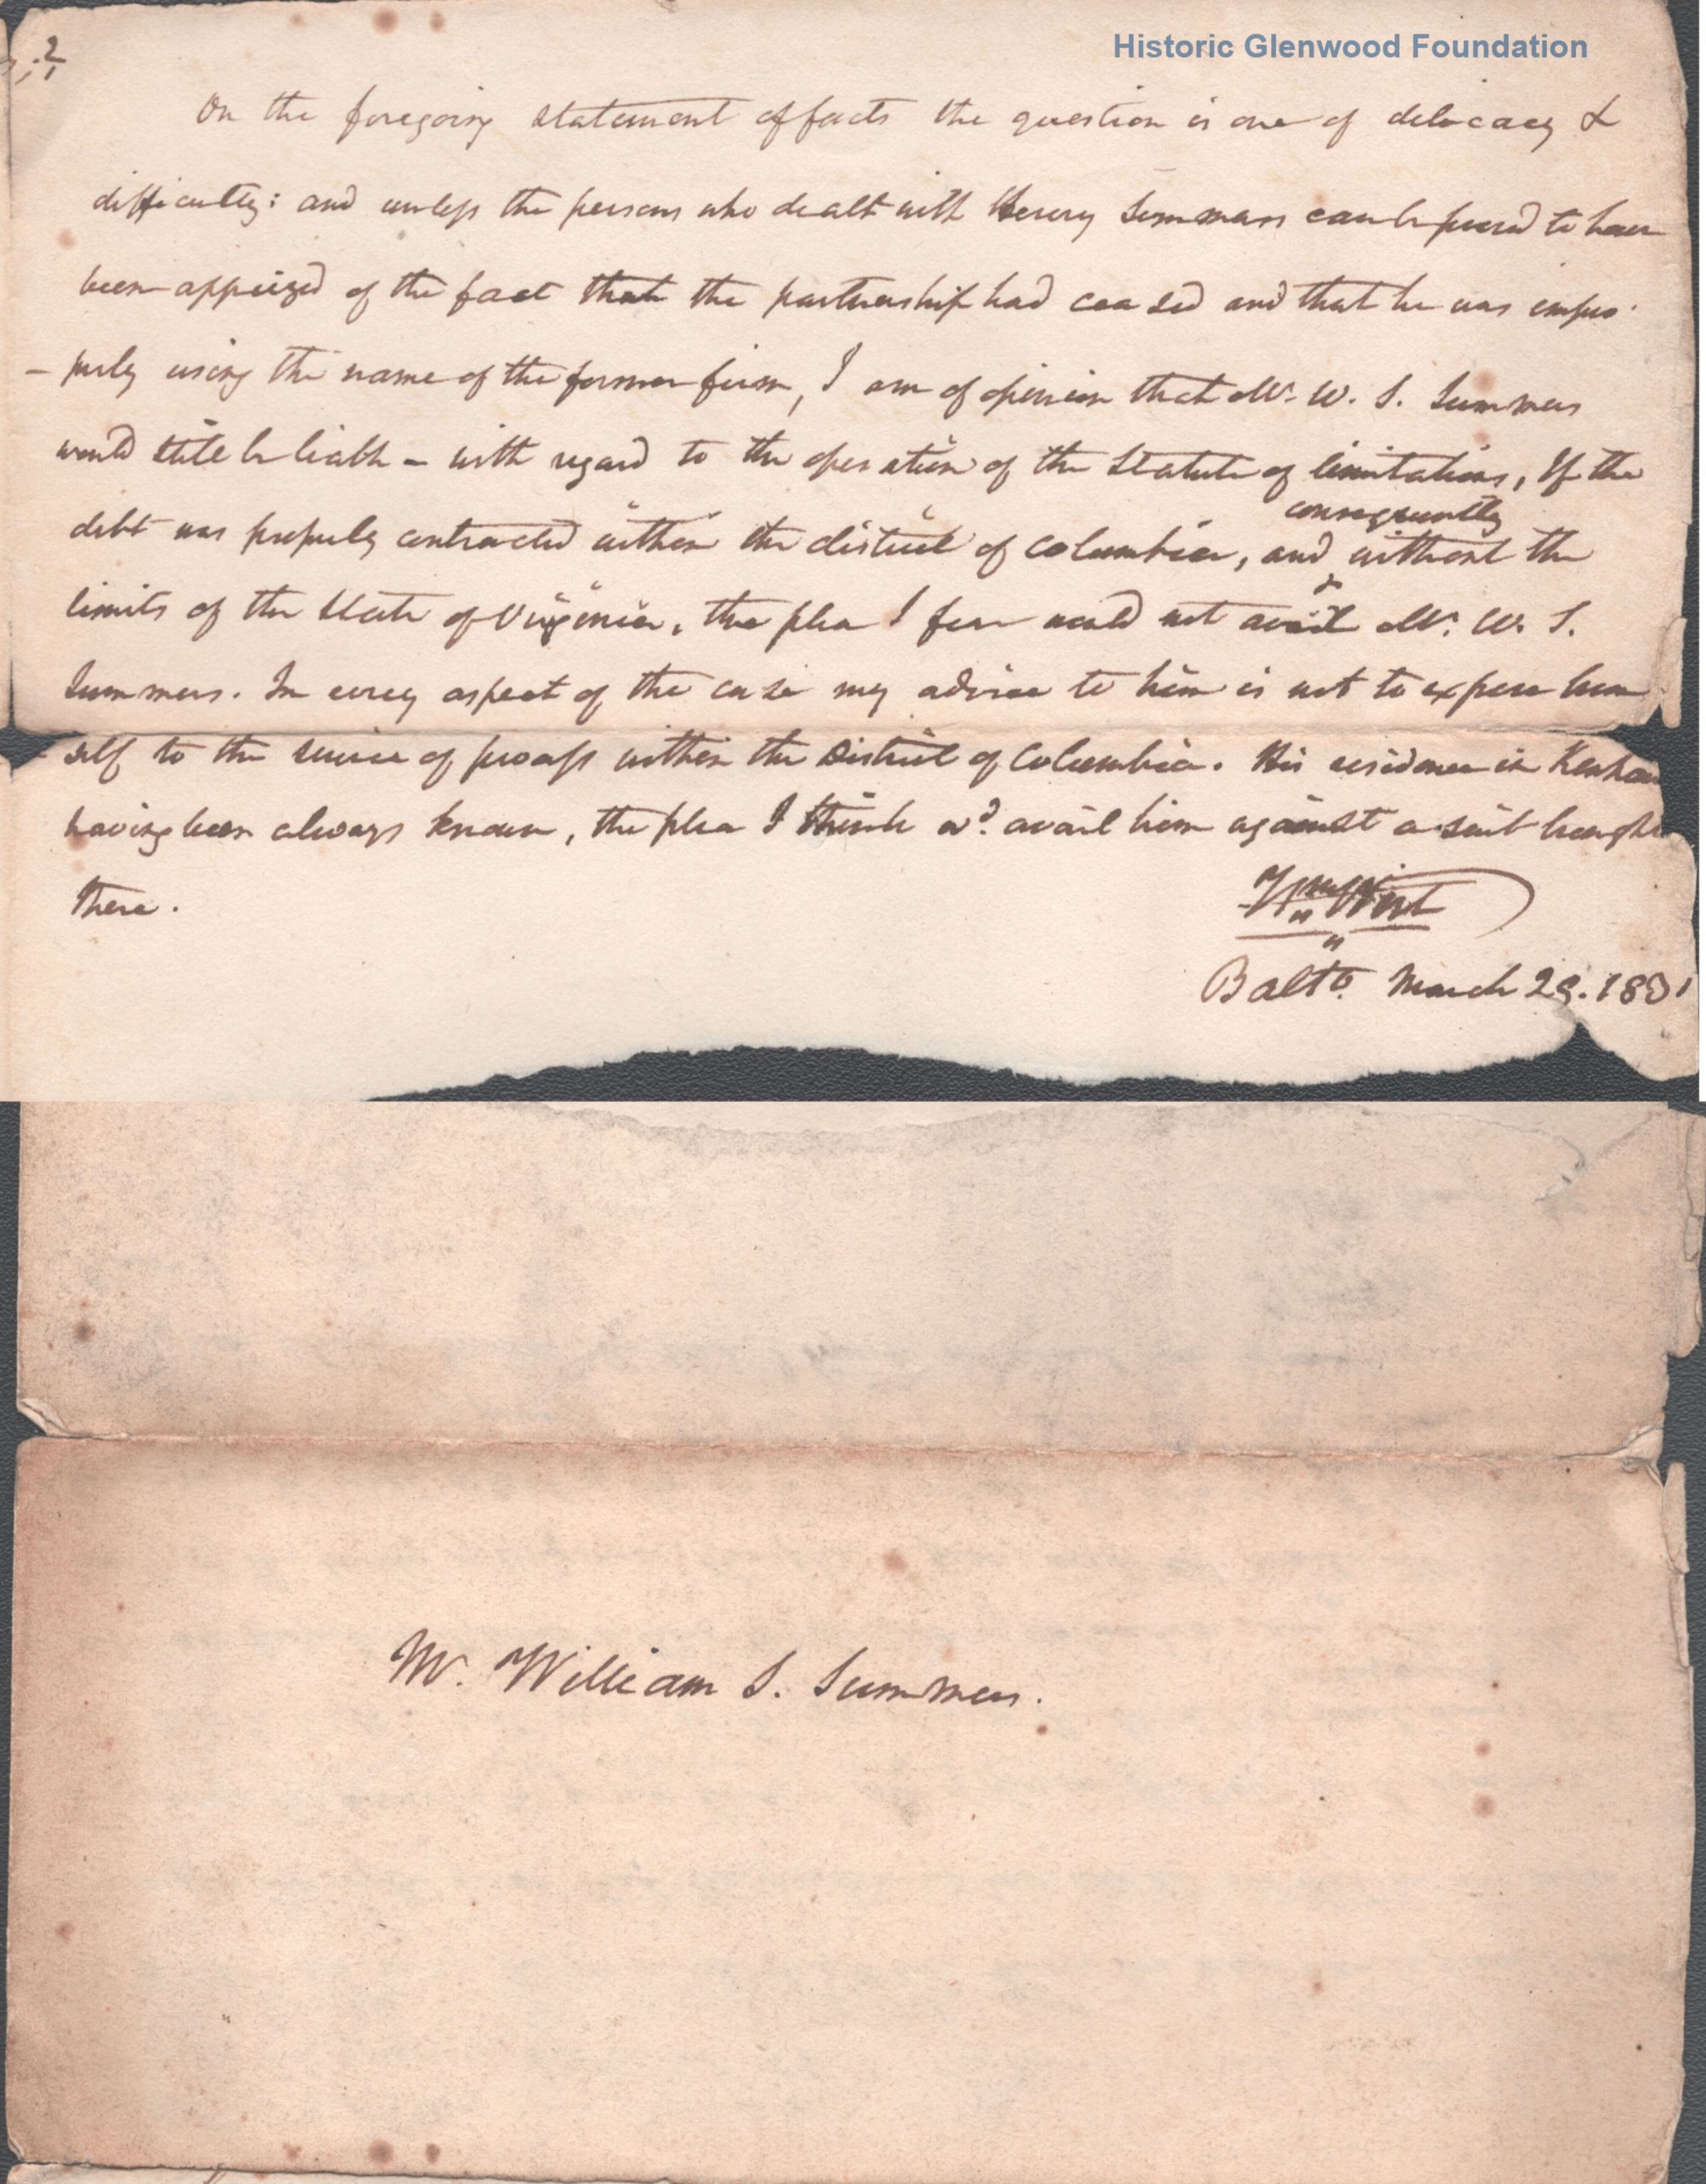 Historic Glenwood Foundation
2
On the foregoing statement of facts the question is one of delicacy &
difficulty: and unless the persons who dealt with Henry Summers can be proved to have
been apprized of the fact that the partnership had ceased and that he was impro-
-perly using the name of the former firm, I am of opinion that Mr. W. S. Summers
would still be liable - with regard to the operation of the Statute of limitations, If the
consequently
debt was properly contracted within the district of Columbia, and without the
limits of the State of Virginia, the plea I fear would not avail Mr. W. S.
Summers. In every aspect of the case my advice to him is not to expose him
self to the service of process within the District of Columbia. His residence in Kenhaw
having been always known, the plea I think wd. avail him against a suit brought
there.
Wm Wirt
Balto. March 29. 1831
Mr. William S. Summers.